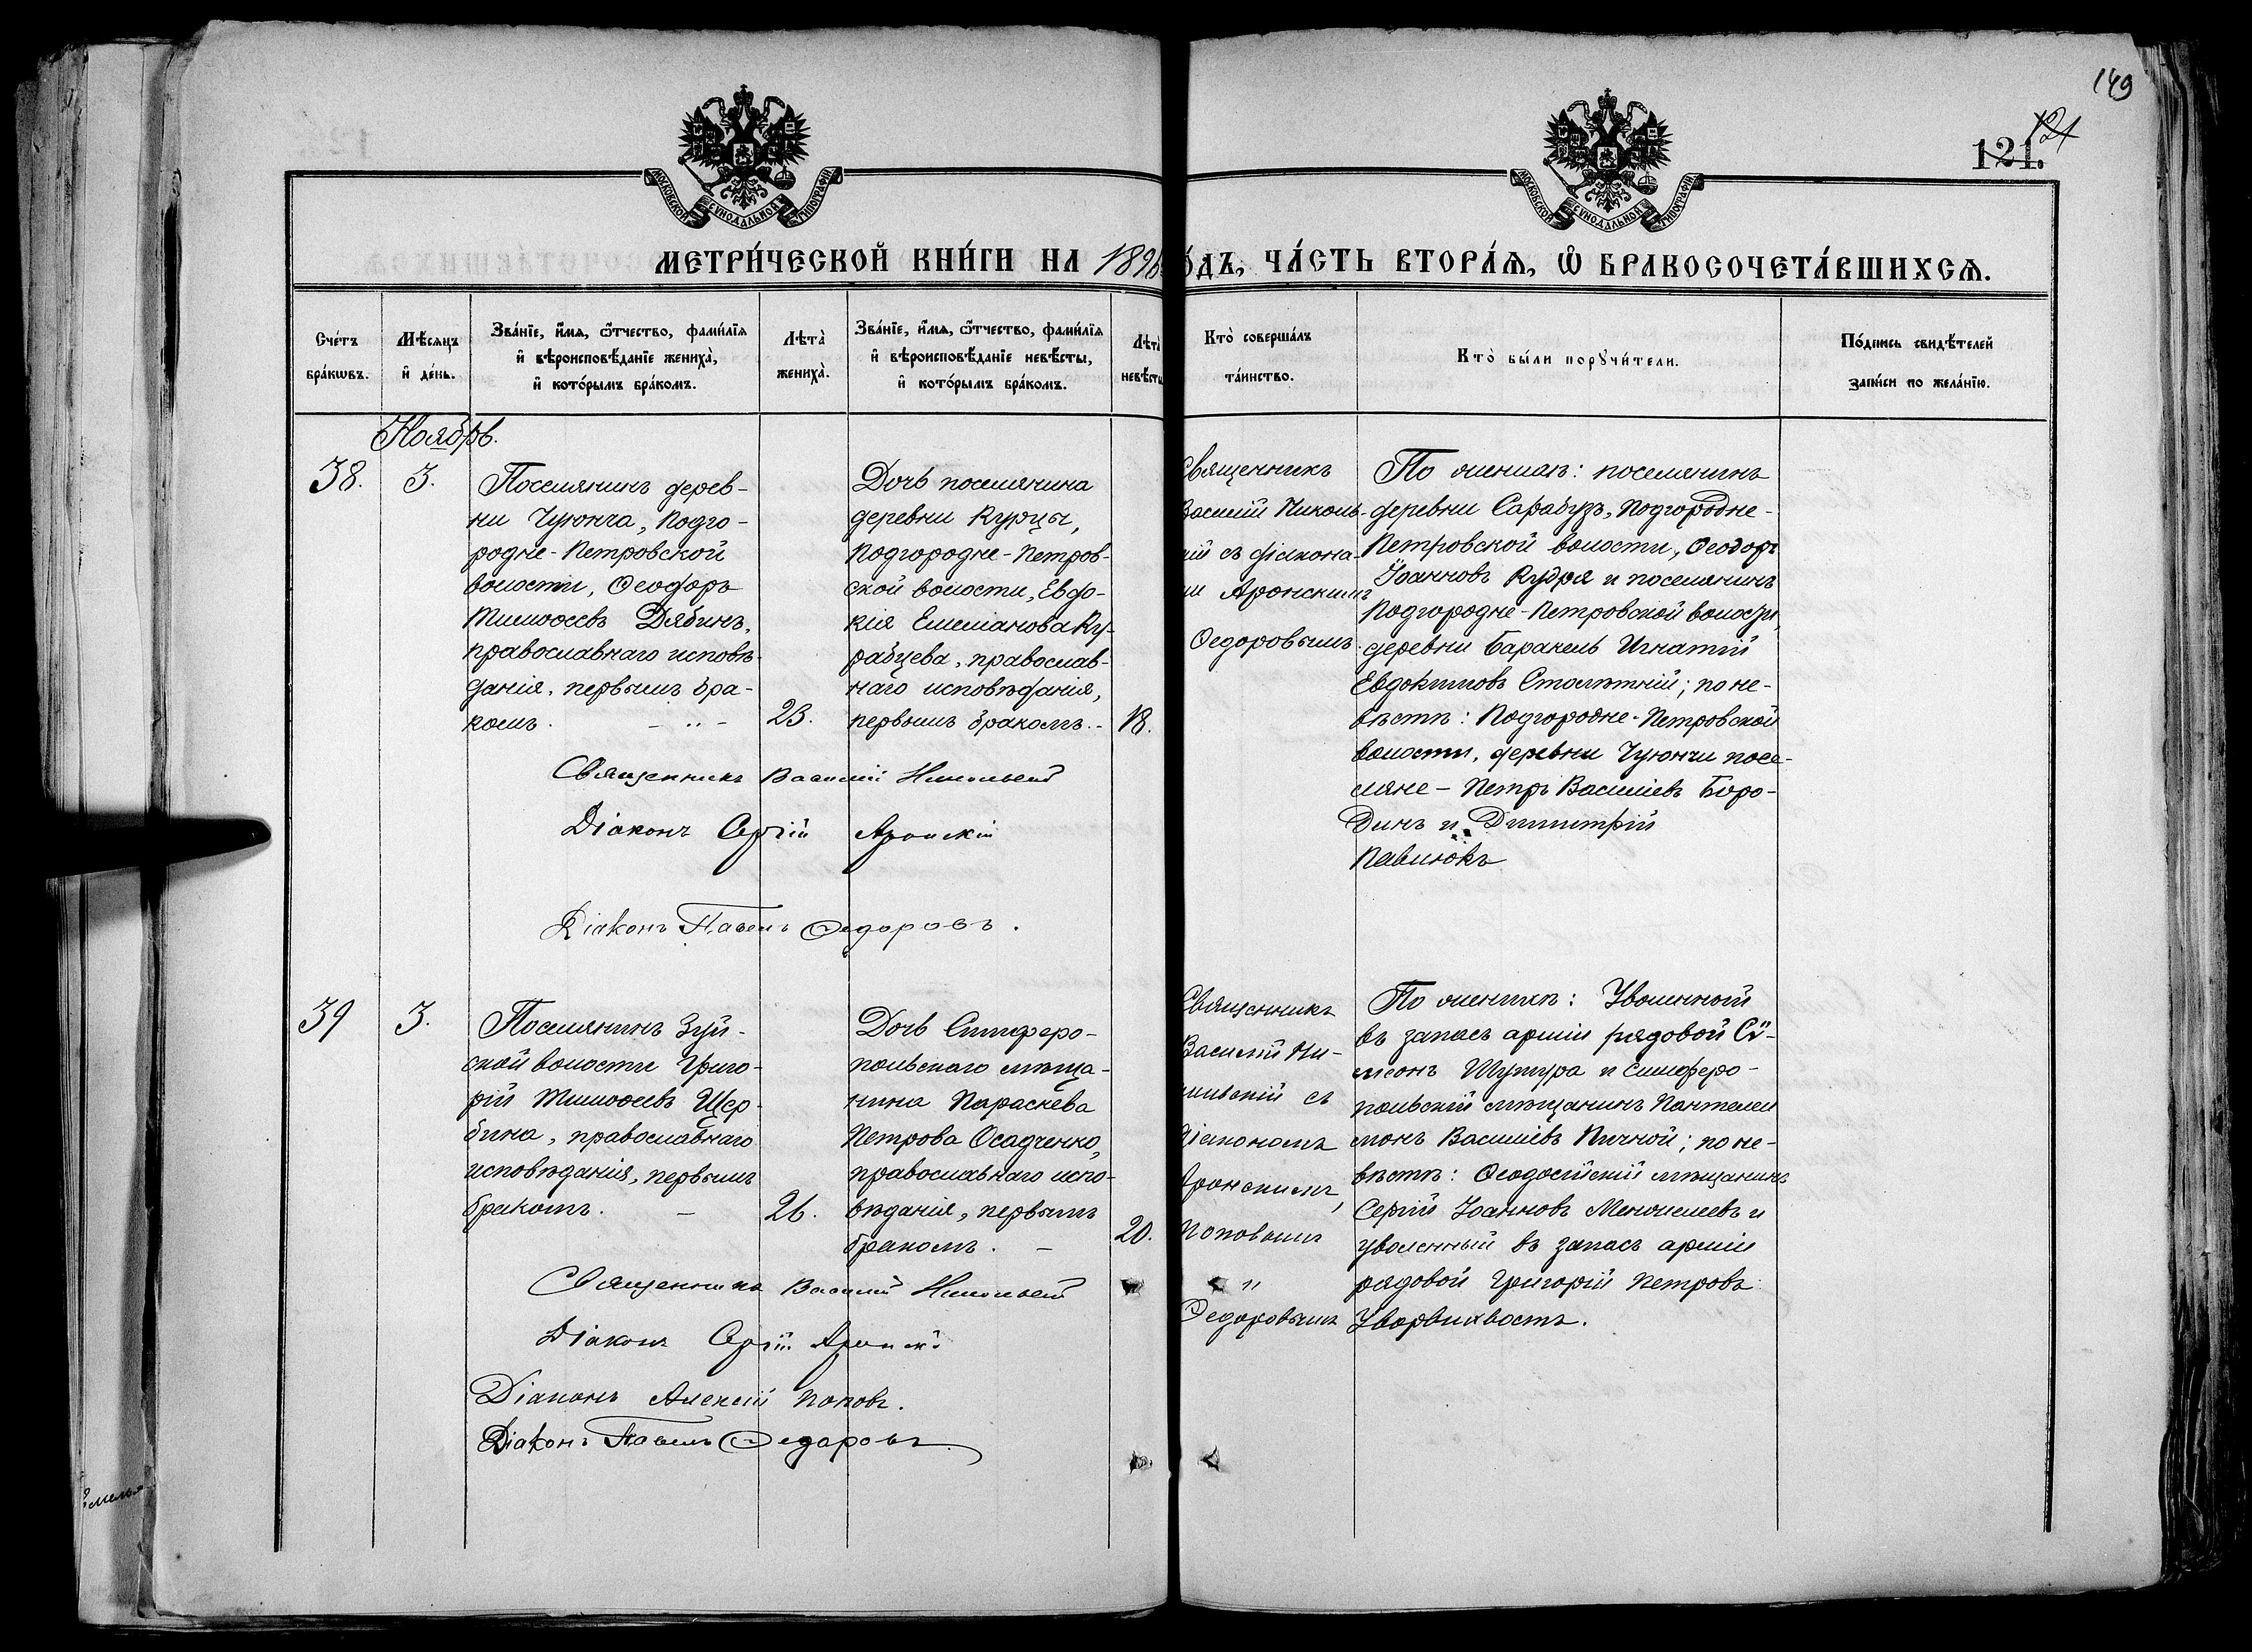 149
121.
121
МОСКОВСКОЙ СѴНОДАЛЬНОЙ ТИПОГРАФІИ
МОСКОВСКОЙ СѴНОДАЛЬНОЙ ТИПОГРАФІИ
МЕТРИ́ЧЕСКОЙ КНИ́ГИ НА 1896 ГО́ДЪ, ЧА́СТЬ ВТОРА́Ѧ, Ѽ БРАКОСОЧЕТА́ВШИХСѦ.
Сче́тъ бра́кѡвъ.
Мѣ́сяцъ и҆ де́нь.
Зва́нїе, и҆́мѧ, ѻ҆́тчество, фами́лїѧ
и҆ вѣроисповѣ́данїе жениха̀,
и҆ кото́рымъ бра́комъ.
Лѣта̀ жениха̀.
Зва́нїе, и҆́мѧ, ѻ҆́тчество, фами́лїѧ
и҆ вѣроисповѣ́данїе невѣ́сты,
и҆ кото́рымъ бра́комъ.
Лѣта̀ невѣ́сты
Кто̀ соверша́лъ
та́инство.
Кто̀ бы́ли порꙋчи́тели.
По́дпись свидѣ́телей
за́писи по жела́нїю.
Ноябрь.
38.
3.
Поселянинъ дерев-
ни Чуюнча, Подго-
родне-Петровской
волости, Ѳеодоръ
Тимоѳеевъ Дябинъ,
православнаго исповѣ-
данія, первымъ бра-
комъ.
23.
Дочь поселянина
деревни Курцы,
Подгородне-Петров-
ской волости, Евдо-
кія Емеліанова Ку-
рабцева, православ-
наго исповѣданія,
первымъ бракомъ.-
18.
Священникъ
Василій Николь-
кій съ діакона-
ми Аронскимъ
Ѳедоровымъ.
По женихѣ: поселянинъ
деревни Сарабузъ, Подгородне-
Петровской волости, Ѳеодоръ
Іоанновъ Кудря и поселянинъ
Подгородне-Петровской волости,
деревни Баракель Игнатій
Евдокимовъ Столѣтній; по не-
вѣстѣ: Подгородне-Петровской
волости, деревни Чуюнчи посе-
ляне - Петръ Василіевъ Боро-
динъ и Димитрій
Павлюкъ
Священникъ Василій Никольскій
Діаконъ Сергій Аронскій
Діаконъ Павелъ Ѳедоровъ.
39
3.
Поселянинъ Зуй-
ской волости Григо-
рій Тимоѳеевъ Щер-
бина, православнаго
исповѣданія, первымъ
бракомъ. -
26.
Дочь Симферо-
польскаго мѣща-
нина Параскева
Петрова Осадченко,
православнаго испо-
вѣданія, первымъ
бракомъ. -
20.
Священникъ
Василій Ни-
кольскій съ
діакономъ
Аронскимъ,
Поповымъ
"
Ѳедоровымъ
По женихѣ: Уволенной
въ запасъ арміи рядовой Сѵ-
меонъ Шутура и Симферо-
польскій мѣщанинъ Пантелей
монъ Василіевъ Пичной; по не-
вѣстѣ: Ѳеодосійскій мѣщанинъ
Сергій Іоанновъ Менжелеевъ и
уволенный въ запасъ арміи
рядовой Григорій Петровъ
Уворвихвостъ.
Священникъ Василій Никольскій
Діаконъ Сергій Аронскій
Діаконъ Алексій Поповъ.
Діаконъ Павелъ Ѳедоровъ.